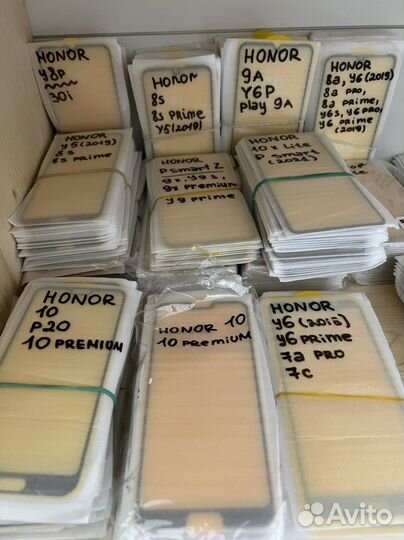 HONOR
Y8P
30i
HONOR
8s
8s PRime
Y5(2019)
HONOR
9A
Y6P
Play 9A
HONOR
8a, Y6(2019)
8a PRO,
8a Prime,
Y6s, Y6 PRO,
Y6 Prime
(2019)
HONOR
Y5(2019)
8s
8s Prime
HONOR
P smart Z
9x, Y9s,
9x Premium
Y9 Prime
HONOR
10x Lite
P smart
(2021)
HONOR
10
P20
10 PREMIUM
HONOR 10
10 PREMIUM
HONOR
Y6 (2018)
Y6 PRime
7a PRO
7c
Avito